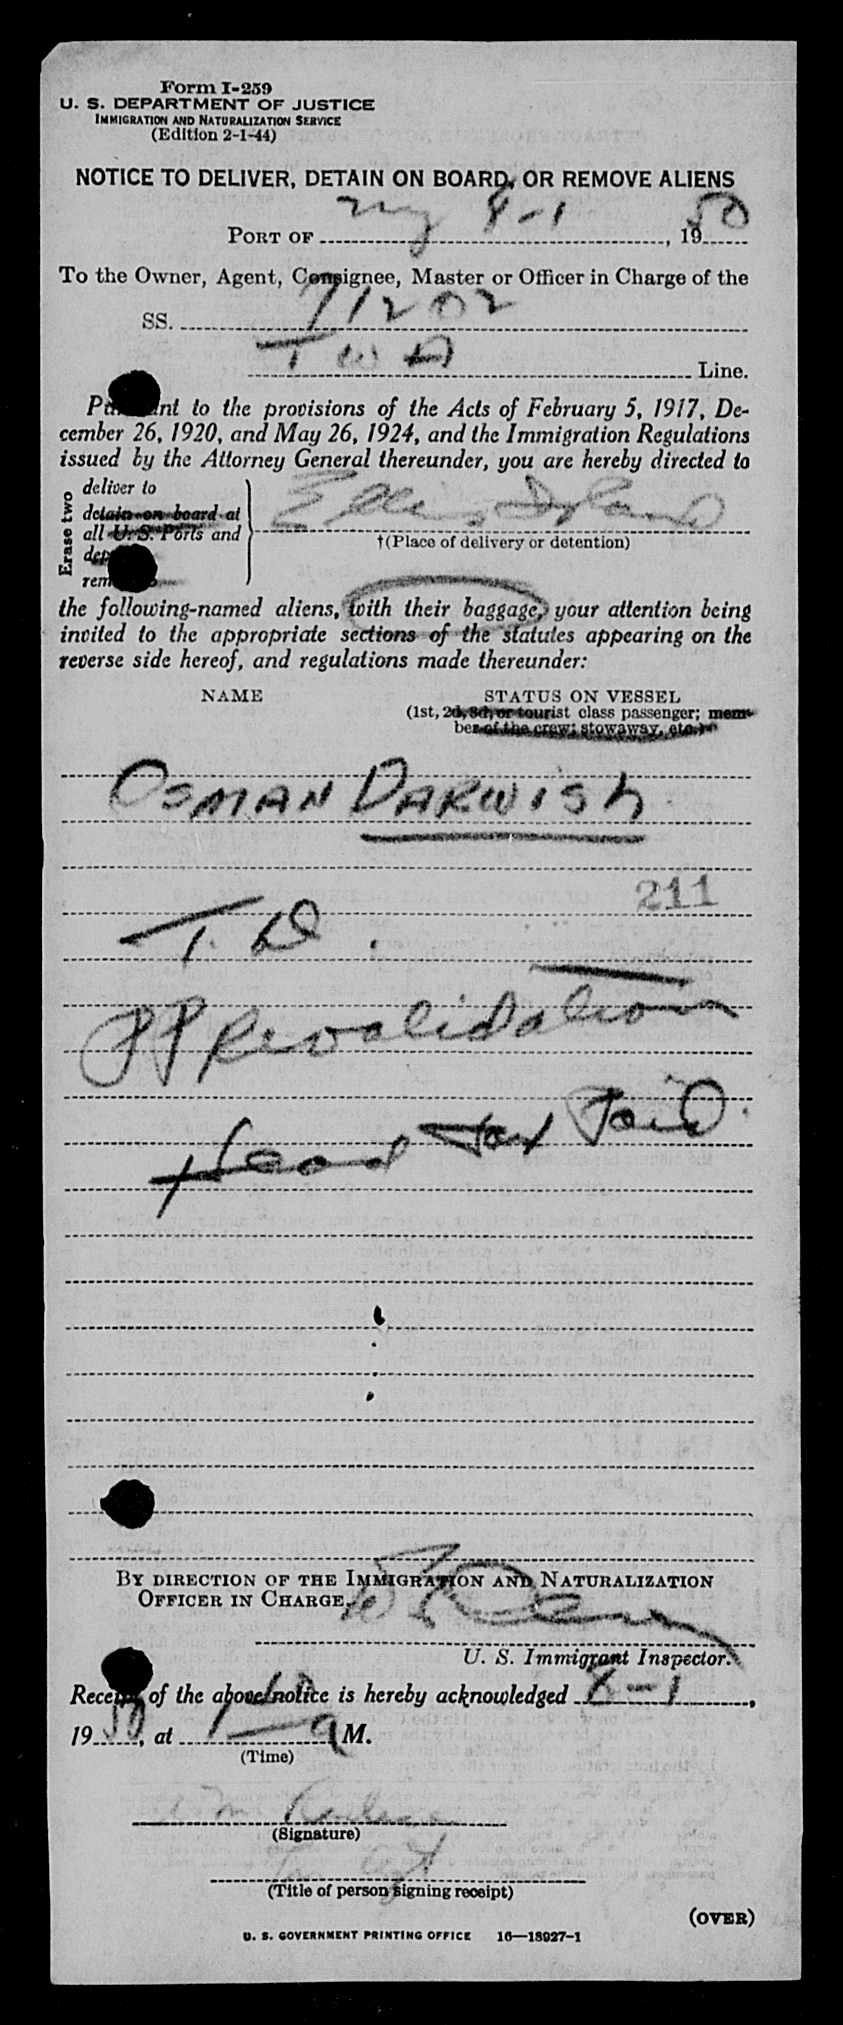 Form I-259
U. S. DEPARTMENT OF JUSTICE
IMMIGRATION AND NATURALIZATION SERVICE
(Edition 2-1-44)
NOTICE TO DELIVER, DETAIN ON BOARD, OR REMOVE ALIENS
PORT OF NY 8-1, 1950
To the Owner, Agent, Consignee, Master or Officer in Charge of the
SS. 71202
TWA Line.
Pursuant to the provisions of the Acts of February 5, 1917, De-
cember 26, 1920, and May 26, 1924, and the Immigration Regulations
issued by the Attorney General thereunder, you are hereby directed to
Erase two
deliver to
detain on board at
all U. S. Ports and
rem
Ellis Island
†(Place of delivery or detention)
the following-named aliens, with their baggage, your attention being
invited to the appropriate sections of the statutes appearing on the
reverse side hereof, and regulations made thereunder:
NAME STATUS ON VESSEL
(1st, 2d, 3d, or tourist class passenger; mem-
ber of the crew; stowaway, etc.)
OSMAN DARWISh
211
T. D.
PP Revalidation
Head Tax Paid.
BY DIRECTION OF THE IMMIGRATION AND NATURALIZATION
OFFICER IN CHARGE.
U. S. Immigrant Inspector.
Receipt of the above notice is hereby acknowledged 8-1,
1950, at 1 A M.
(Time)
(Signature)
(Title of person signing receipt)
(OVER)
U. S. GOVERNMENT PRINTING OFFICE 16—18927-1